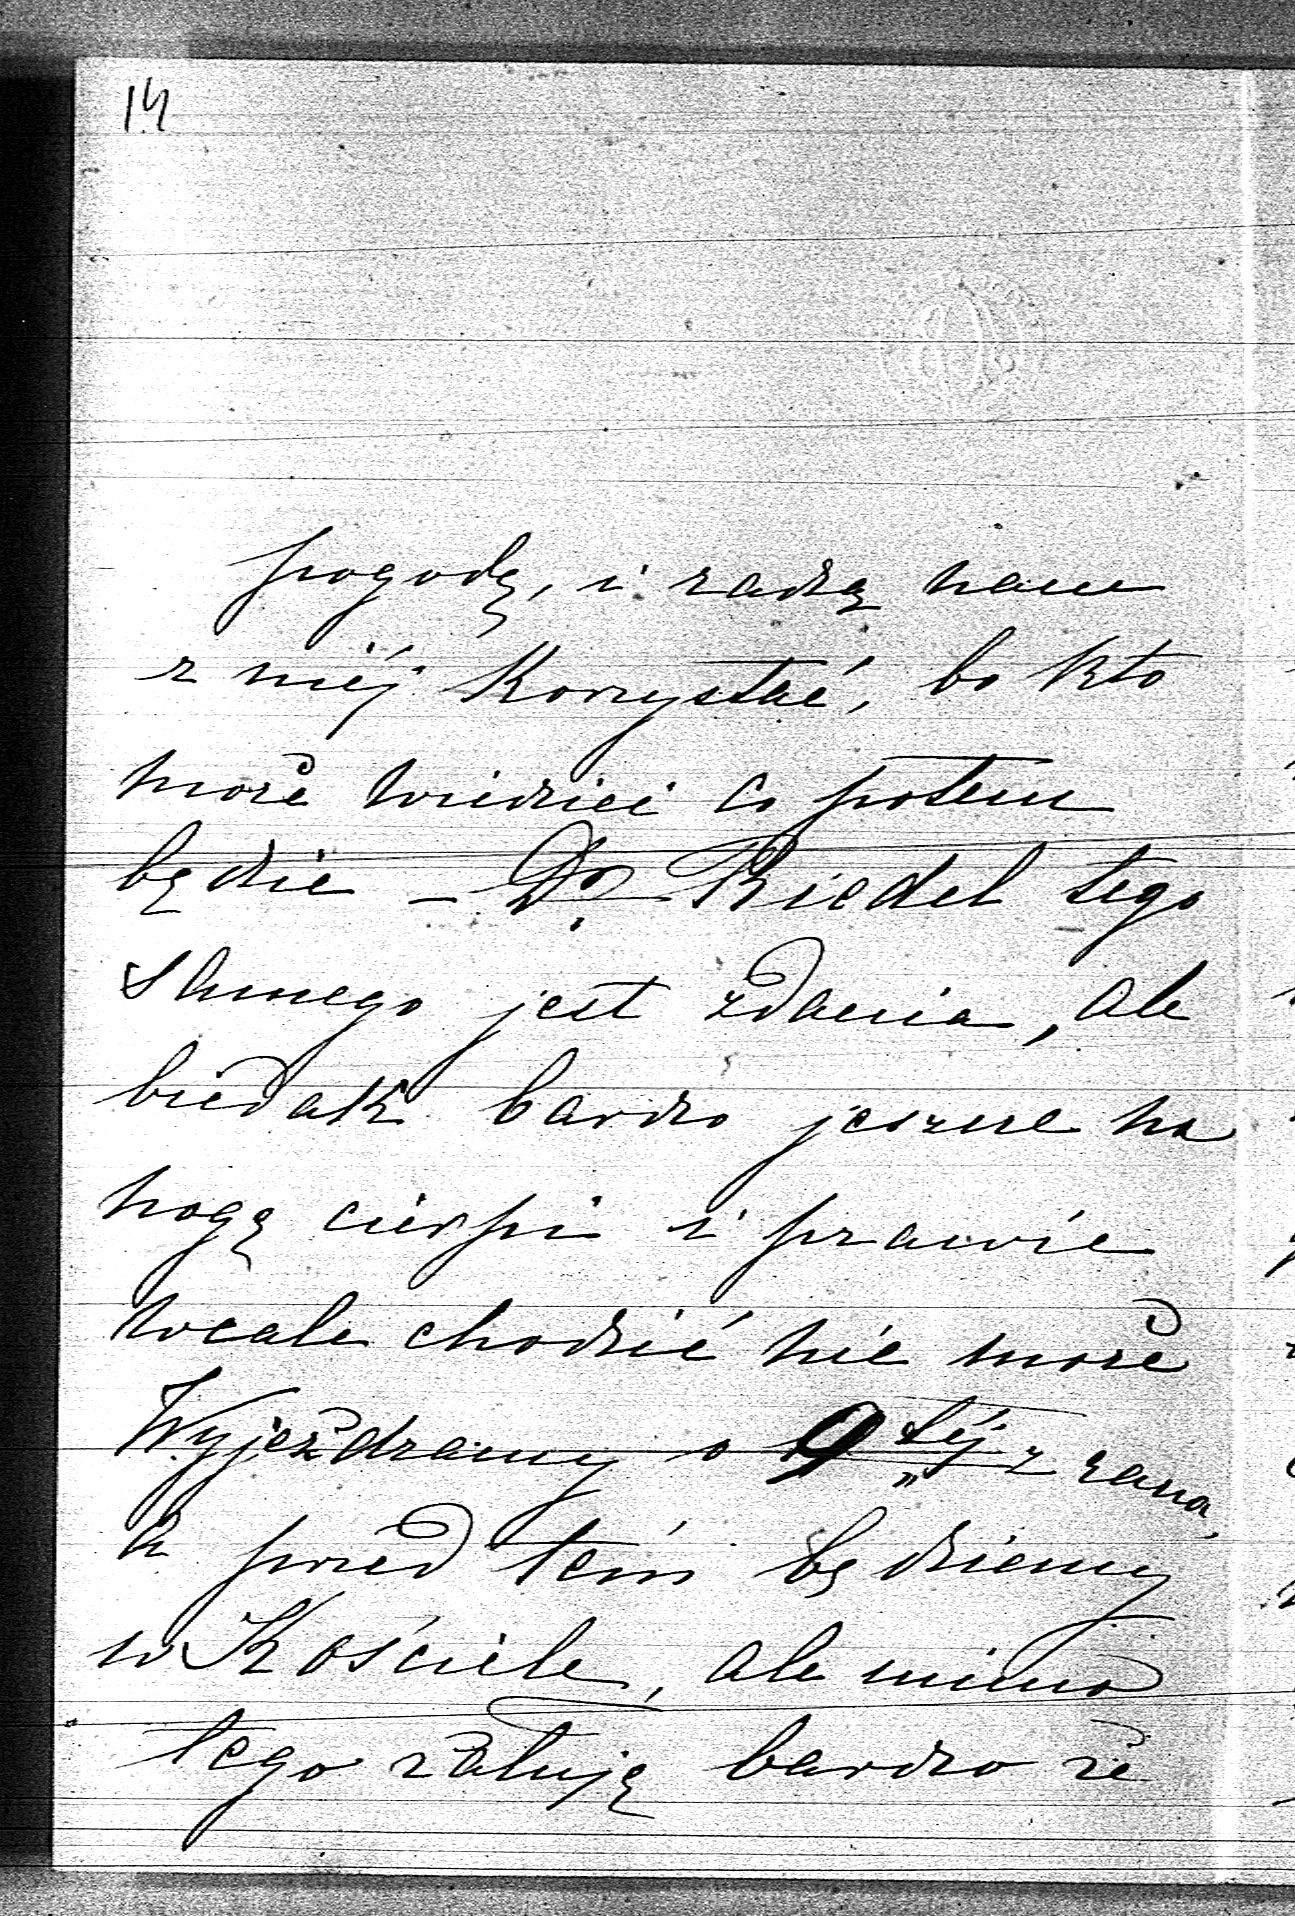 14
pogodę, i radzą nam
z niéj korzystać, bo kto
może wiedzieć co potem
będzie – Dr. Riedel tego
samego jest zdania, ale
biedak bardzo jeszcze na
nogę cierpi i prawie
wcale chodzić nie może
Wyjeżdzamy o 9 téj z rana,
a przed tém będziemy
w Kościele, ale mimo
tego żałuję bardzo że